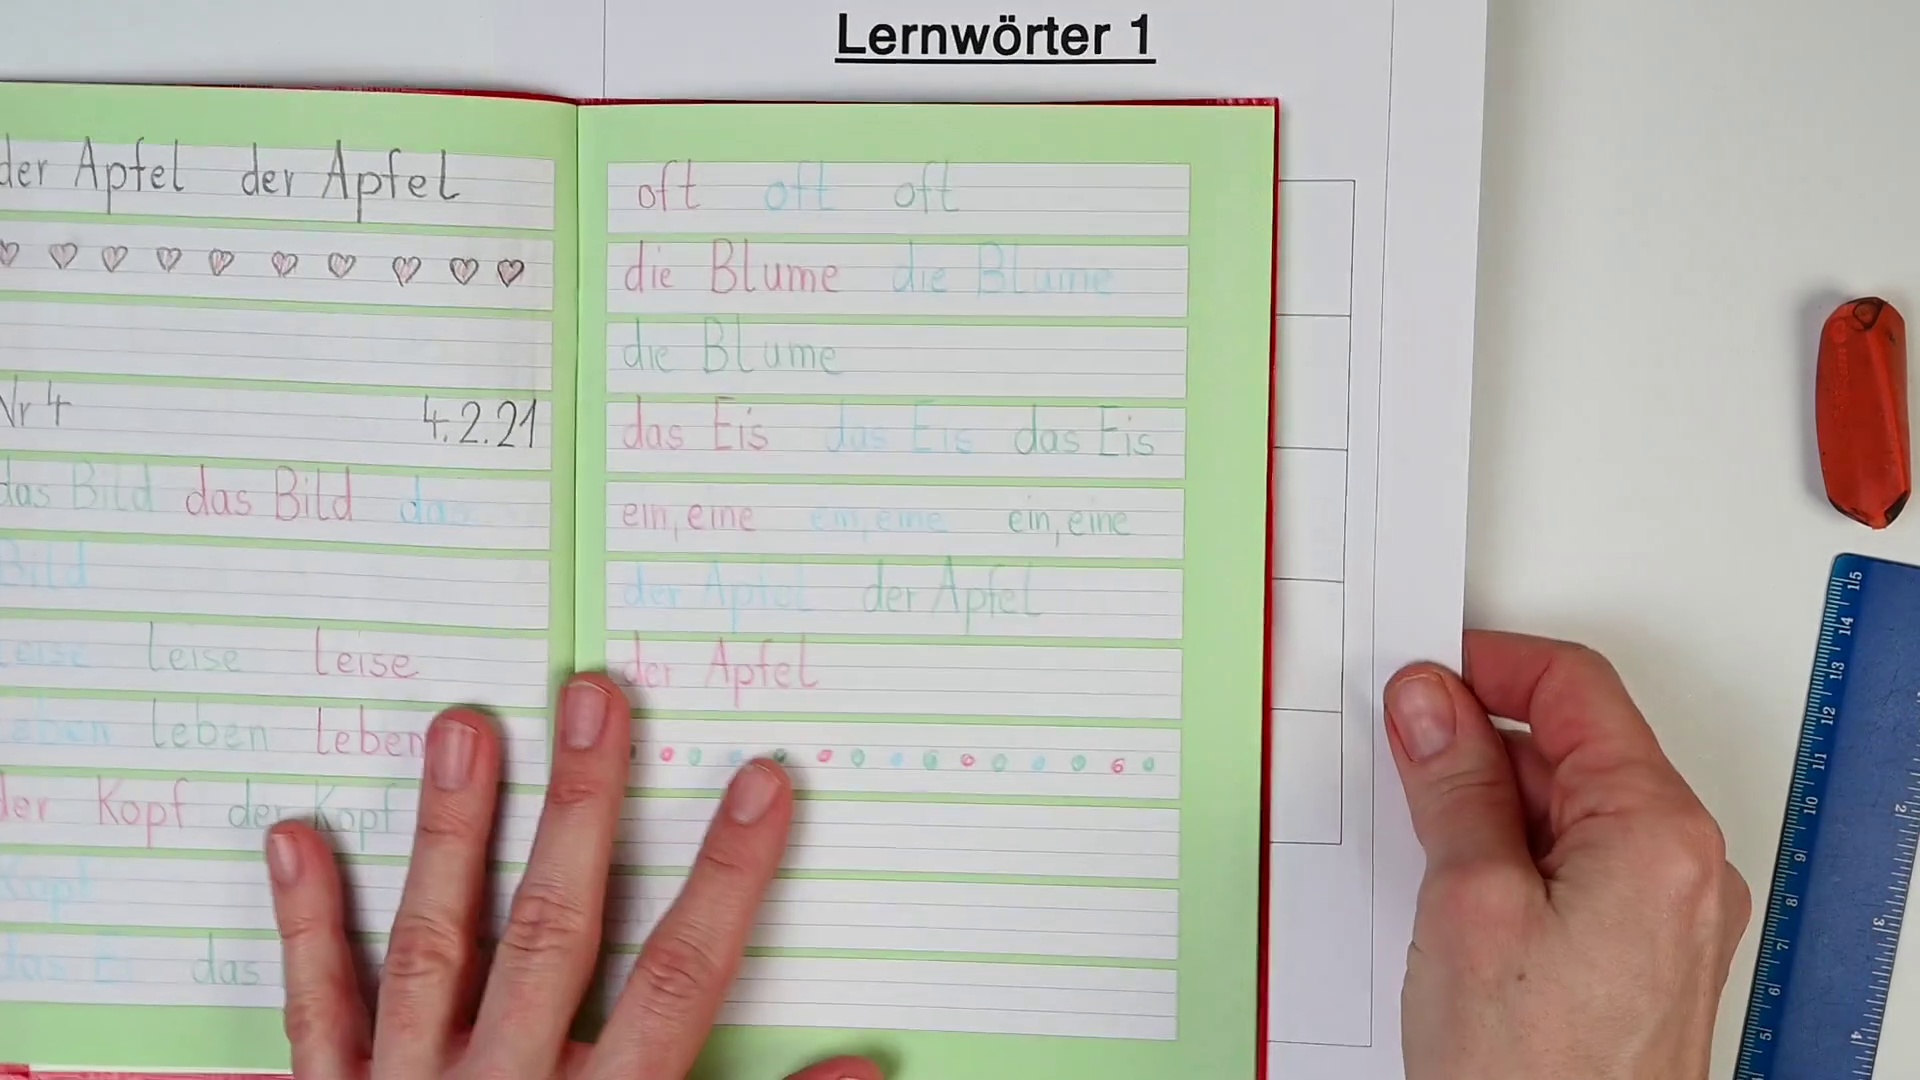 Lernwörter 1
der Apfel der Apfel
Nr 4 4.2.21
das Bild das Bild das
Bild
leise leise leise
leben leben leben
der Kopf der Kopf
Kopf
das Ei das
oft oft oft
die Blume die Blume
die Blume
das Eis das Eis das Eis
ein, eine ein, eine ein, eine
der Apfel der Apfel
der Apfel
15
14
13
12
11
10
9
8
7
6
5
2
3
4